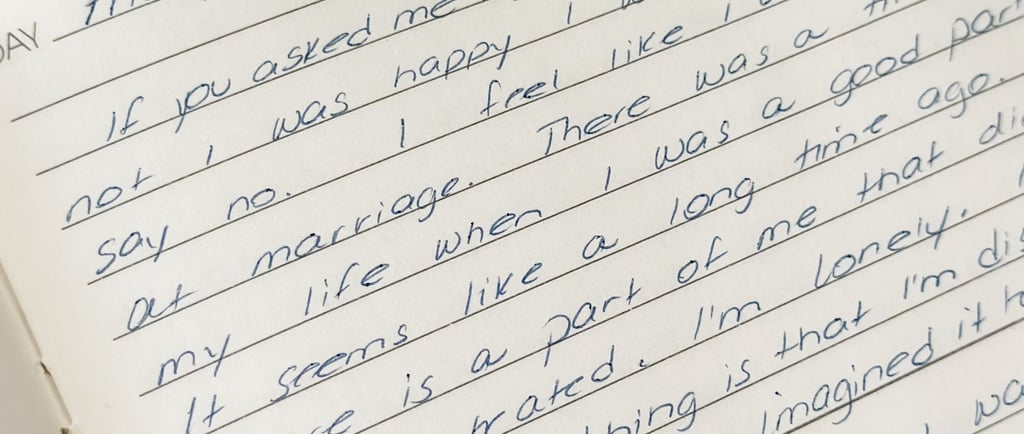 DAY
If you asked me
not I was happy I
say no. I feel like I
at marriage. There was a
my life when I was a good part
It seems like a long time ago.
is a part of me that
I'm lonely.
is that I'm
imagined it